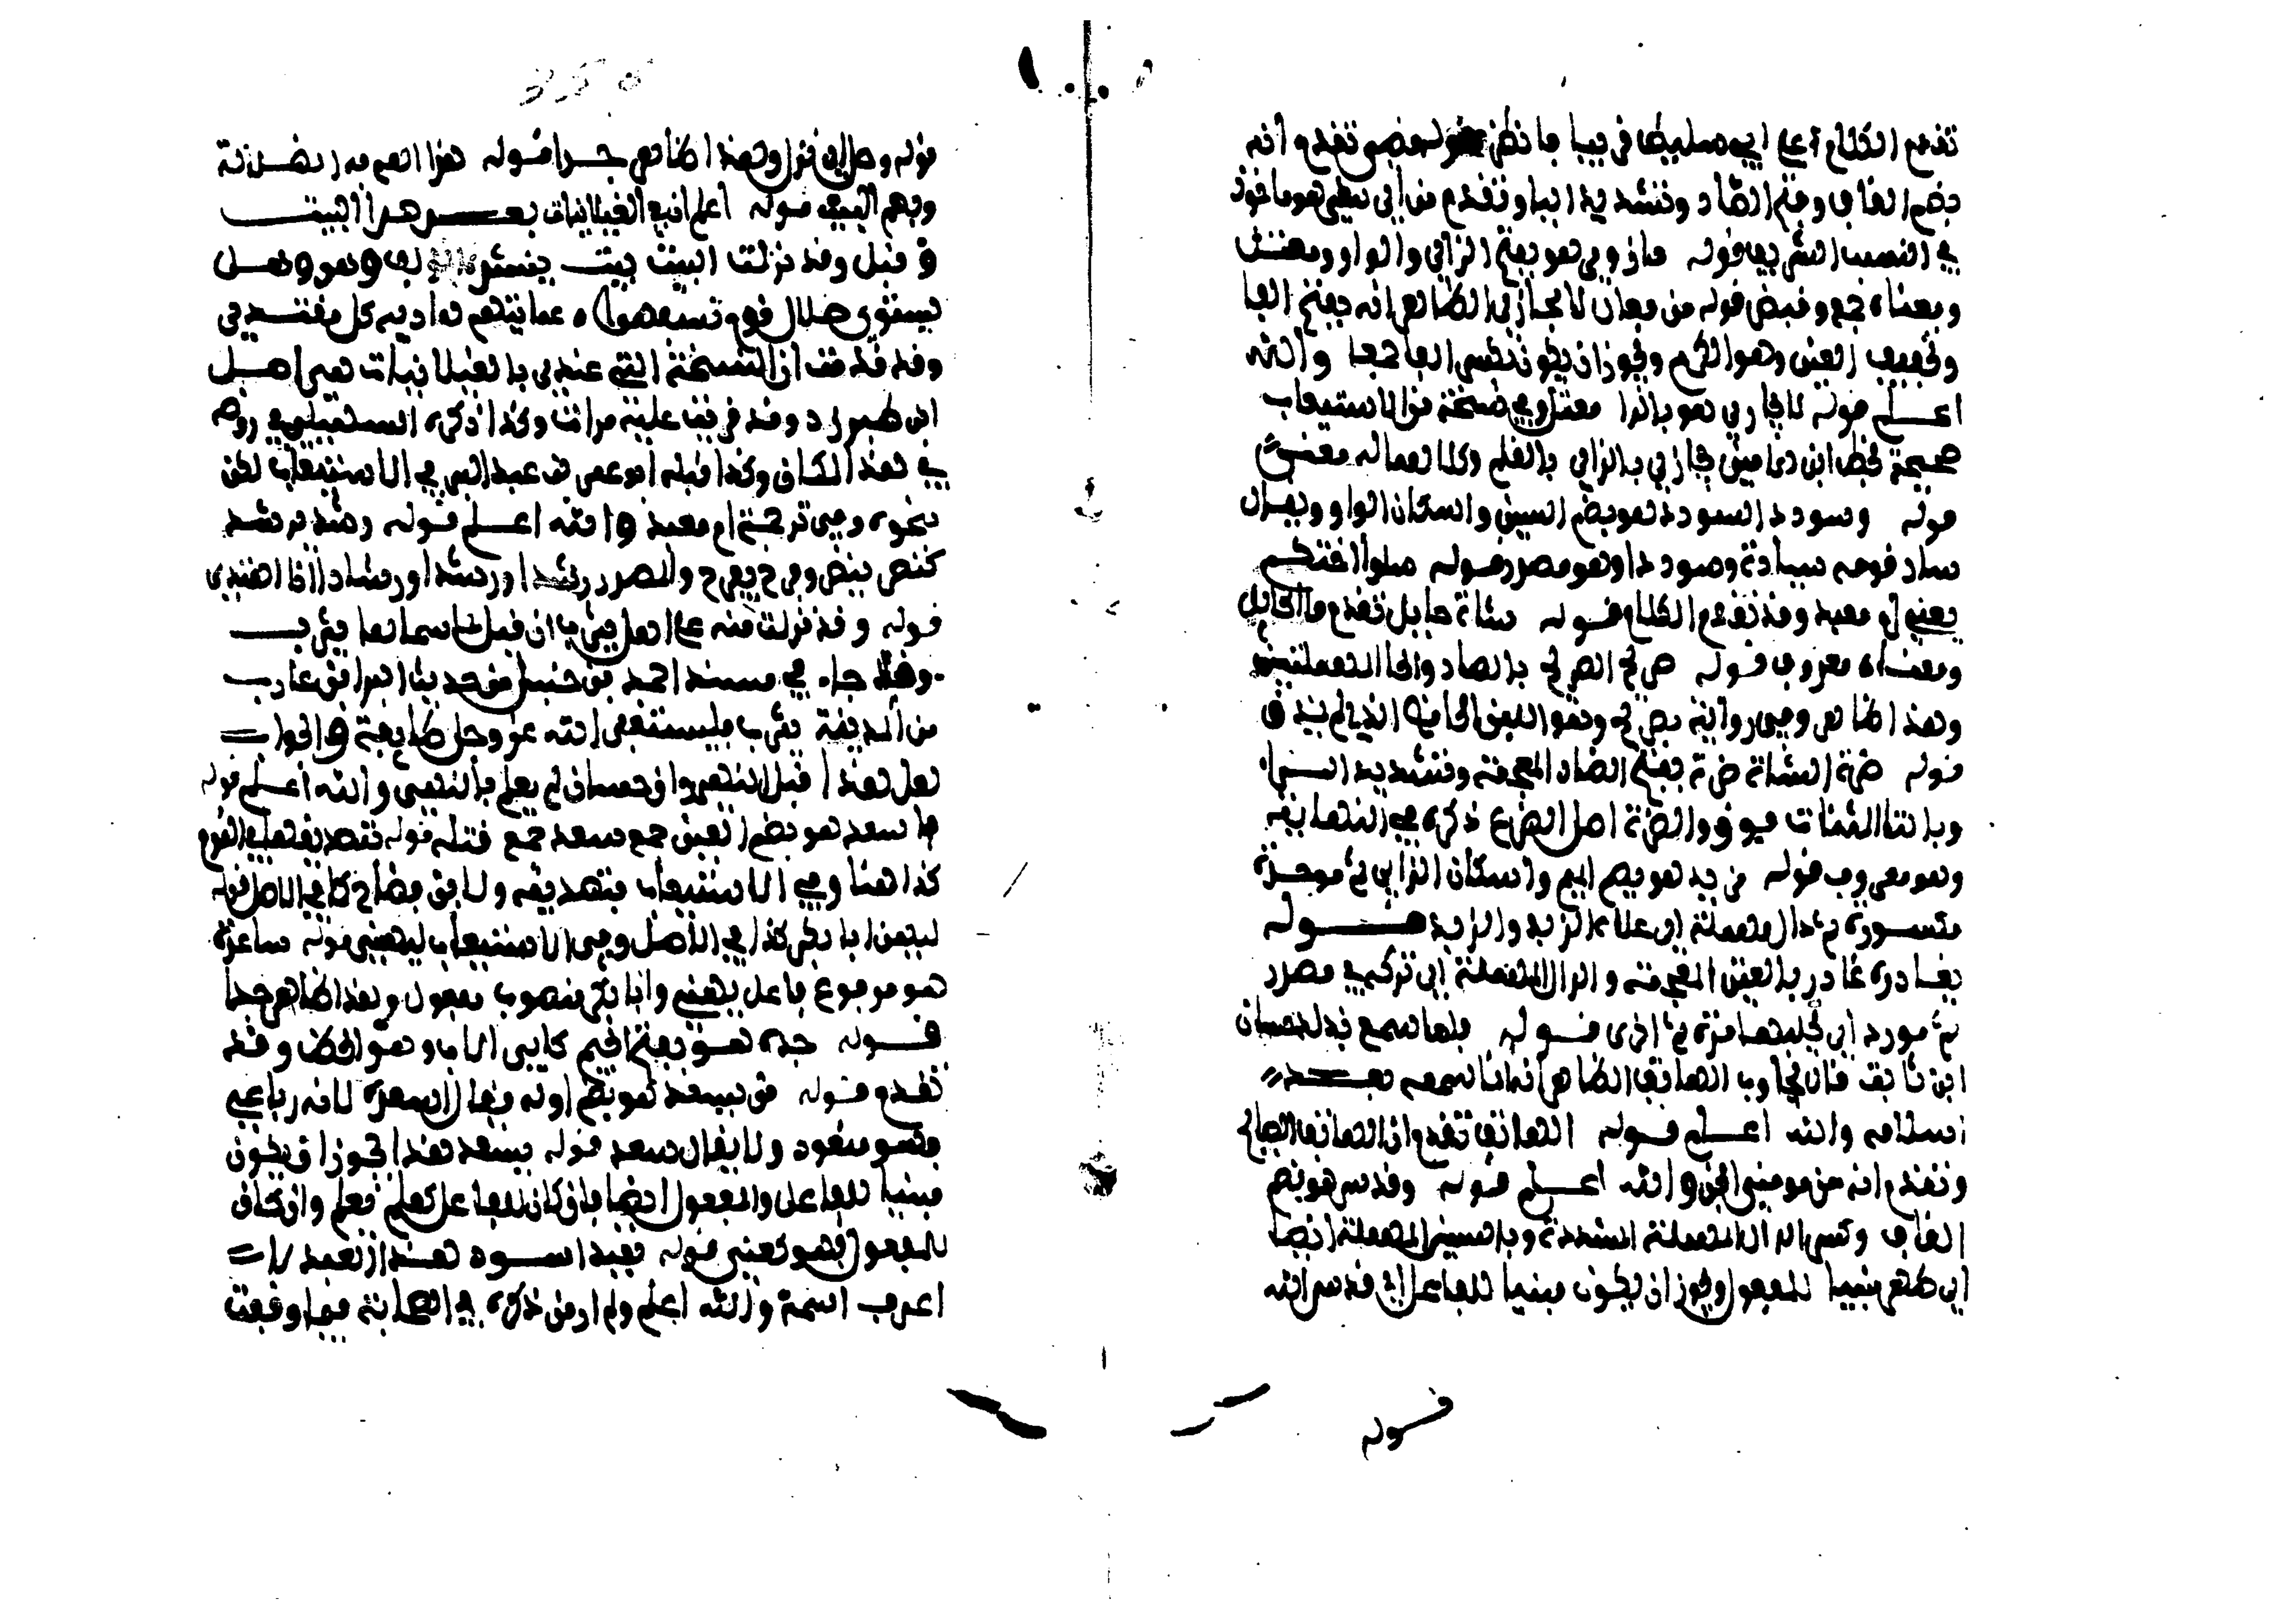 تقدم الكلام على ابي سليط في بيبا فانظره قوله قصي تقدم وانه
بضم القاف وفتح الصاد وتشديد اليا وتقدم من اين يعني هو ماخوذ
في النسب الشريف قوله ما زوى هو بفتح الزاي والواو ومعتل
ومعناه جمع وقبض قوله من فعال لا يجازى الظاهر انه بفتح الفا
وتخفيف العين وهو الكرم ويجوز ان يكون بكسر الفا جمعا والله
اعلم قوله لا يجارى هو بالرا معتل وفي نسخة من الاستيعاب
صحيحة بخط ابن الامين يجازى بالزاي بالقلم وكلاهما له معنى
قوله وسودد السودد هو بضم السين واسكان الواو ويقال
ساد قومه سيادة وسوددا وهو مصدر قوله سلوا اختكم
يعني ام معبد وقد تقدم الكلام قوله بشاة حايل تقدم ما الحايل
ومعناه معروف قوله صريح الصريح بالصاد والحا المهملتين
وهذا ظاهر وفي رواية بصريح وهو اللبن الخالص الذي لم يمذق
قوله ضرة الشاة ضرة بفتح الضاد المعجمة وتشديد الرا
وبالتا المثناة فوق والضرة اصل الضرع ذكره في النهاية
وهو معروف قوله مزبد هو بضم الميم واسكان الزاي ثم موحدة
مكسورة ثم دال مهملة اي علاه الزبد والزبد قوله
يغادره غادر بالغين المعجمة والدال المهملة اي ترك في مصدر
ثم مورد اي يحلبها مرة ثم اخرى قوله فلما سمع بذلك حسان
ابن ثابت قال يجاوب الهاتف الظاهر انه انما سمعه بعد
اسلامه والله اعلم قوله الهاتف تقدم ان الهاتف الصايح
وتقدم انه من مومني الجن والله اعلم قوله وقدس هو بضم
القاف وكسر الدال المهملة المشددة وبالسين المهملة ايضا
اي طهر مبنيا للمفعول ويجوز ان يكون مبنيا للفاعل اي قدس الله
قوله
قوله وهذا ظاهر جدا قوله هداهم به الضلالة
ربهم البيت قوله اعلم انه في الغيلانيات بعد هذا البيت
وقبل وقد نزلت البيت بيت وهو وهل
يستوي ضلال قوم تسفهوا عمايتهم هاد به كل مقتدي
وقد قدمت ان النسخة التي عندي بالغيلانيات هي اصل
ابن طبرزد وقد قريت عليه مرات وكذا ذكره السهيلي في روضه
في هذا المكان وكذا قبله ابو عمر بن عبد البر في الاستيعاب لكن
نحوه وفي ترجمة ام معبد والله اعلم قوله رشد يرشد
كنصر ينصر وفرح يفرح والمصدر رشدا ورشدا ورشادا اذا اهتدى
قوله وقد نزلت منه على اهل يثرب ان قيل لم سماها يثرب
وقد جاء في مسند احمد بن حنبل من حديث البرا بن عازب
من المدينة يثرب فليستغفر الله عز وجل طابة والجواب
لعل هذا قبل النهي او ان حسان لم يعلم بالنهي والله اعلم قوله
سعد هو بضم العين جمع سعد جمع قلة قوله بتصديقها في اليوم
كذا هنا وفي الاستيعاب بتصديقه ولابن وضاح كما في الاصل قوله
ليهن ابا بكر كذا في الاصل وفي الاستيعاب ليهني قوله سعادة
هو مرفوع فاعل يهني وابا بكر منصوب مفعول وهذا ظاهر جدا
قوله جده هو بفتح الجيم كابي الاب وهو الحظ وقد
تقدم قوله من يسعد هو بضم اوله ويقال اسعده لانه رباعي
فهو مسعود ولا يقال سعد قوله يسعد هذا يجوز ان يكون
مبنيا للفاعل والمفعول ايضا فان كان للفاعل كعلم يعلم وان كان
للمفعول فهو كعني قوله لعبد اسود هذا العبد لا
اعرف اسمه والله اعلم ولم ار من ذكره في الصحابة فيما وقفت